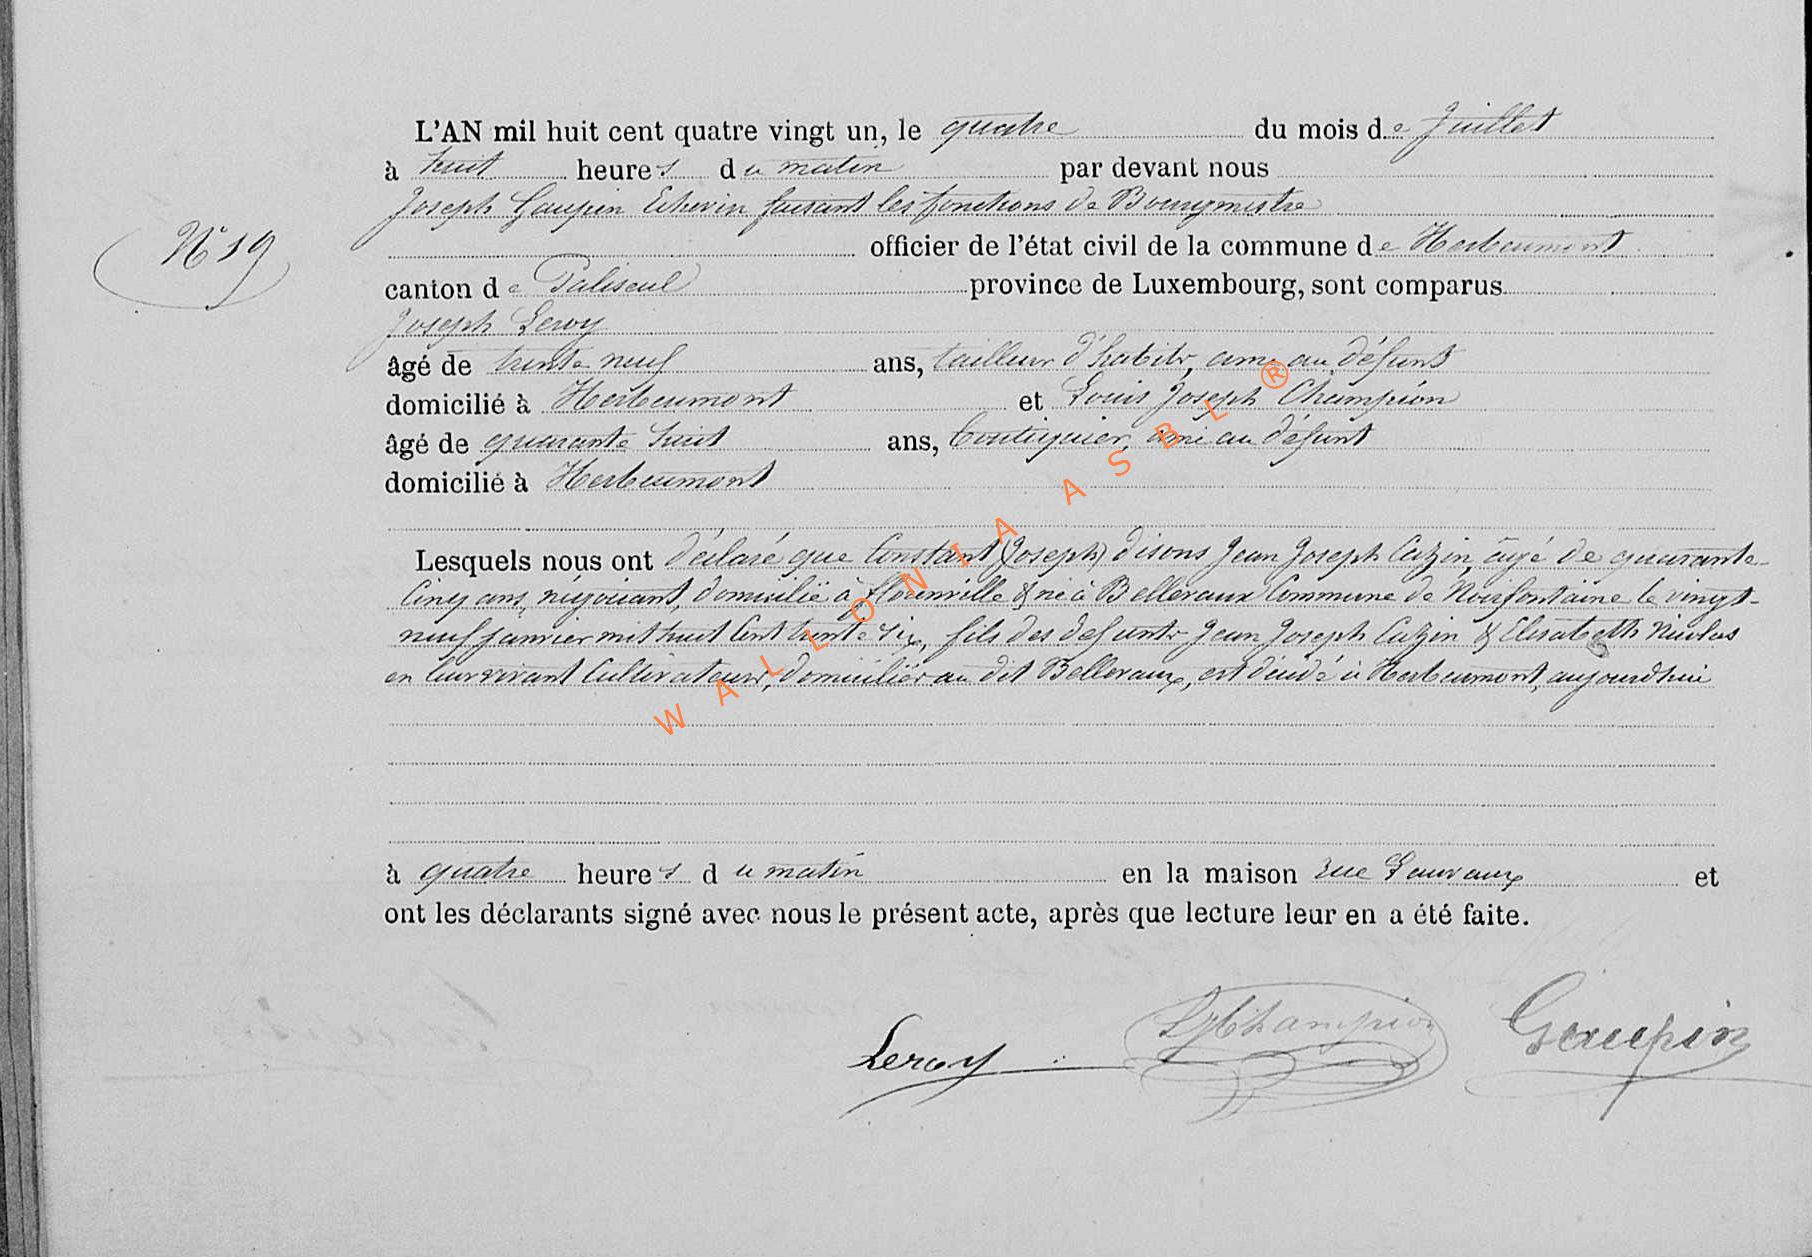 L'AN mil huit cent quatre vingt un, le quatre du mois de Juillet
à huit heures du matin par devant nous
Joseph Gaupin Echevin faisant les fonctions de Bourgmestre
N° 19
officier de l'état civil de la commune de Herbeumont
canton de Paliseul province de Luxembourg, sont comparus
Joseph Leroy
âgé de trente neuf ans, tailleur d'habits, ami au défunt
domicilié à Herbeumont et Louis Joseph Champion
âgé de quarante huit ans, boutiquier, ami au défunt
domicilié à Herbeumont
Lesquels nous ont déclaré que Constant (Joseph) disons Jean Joseph Cazin, âgé de quarante-
Cinq ans, négociant, domicilié à Florenville & né à Bellevaux Commune de Noirfontaine le vingt-
neuf janvier mil huit Cent trente six, fils des defunts Jean Joseph Cazin & Elisabeth Nicolas
en leur vivant Cultivateurs, domiciliés au dit Bellevaux, est décédé à Herbeumont, aujourd'hui
à quatre heures du matin en la maison rue Lauvaux et
ont les déclarants signé avec nous le présent acte, après que lecture leur en a été faite.
Leroy LJ Champion Gaupin
WALLONIA ASBL ®